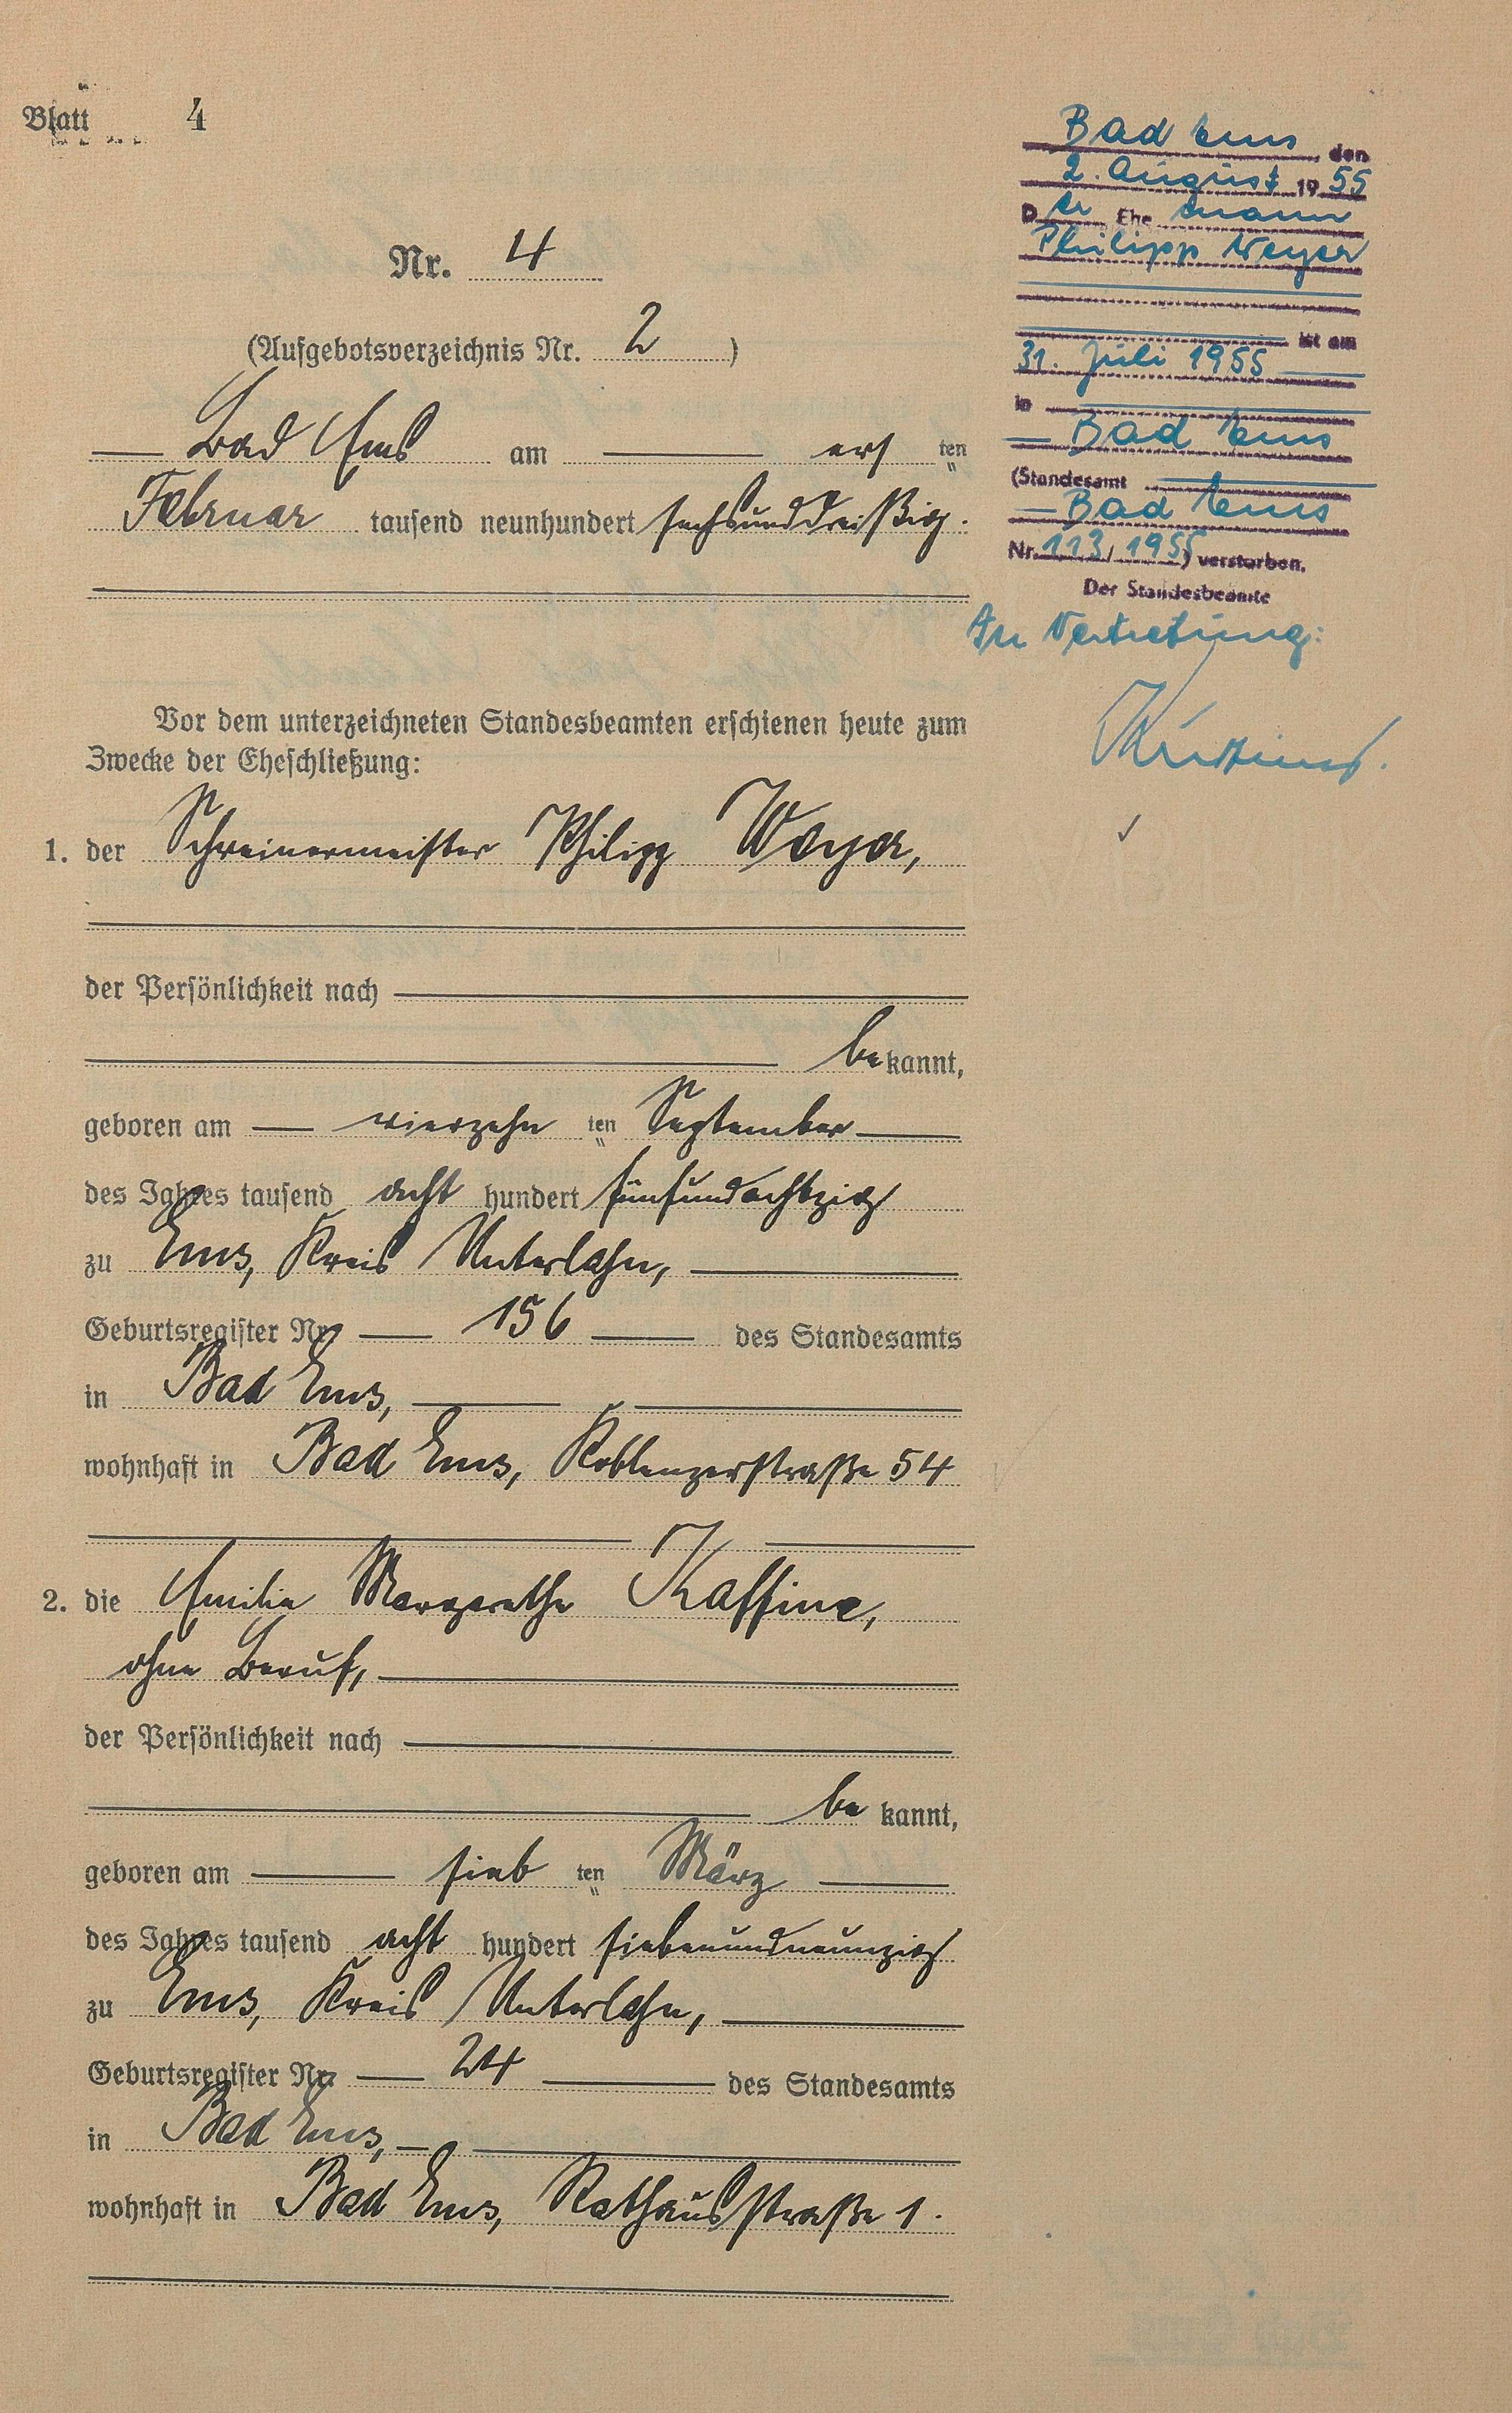 Blatt 4
Nr. 4
(Aufgebotsverzeichnis Nr. 2)
Bad Ems am ersten
Februar tausend neunhundert sechsunddreißig.
Vor dem unterzeichneten Standesbeamten erschienen heute zum
Zwecke der Eheschließung:
1. der Schreinermeister Philipp Weyer,
der Persönlichkeit nach
bekannt,
geboren am vierzehnten September
des Jahres tausend acht hundert fünfundachtzig
zu Ems, Kreis Unterlahn,
Geburtsregister Nr. 156 des Standesamts
in Bad Ems,
wohnhaft in Bad Ems, Koblenzerstraße 54
2. die Emilie Margarethe Kaffine,
ohne Beruf,
der Persönlichkeit nach
be kannt,
geboren am siebten März
des Jahres tausend acht hundert siebenundneunzig
zu Ems, Kreis Unterlahn,
Geburtsregister Nr. 24 des Standesamts
in Bad Ems,
wohnhaft in Bad Ems, Rathausstraße 1.
Bad Ems, den
2. August 1955
Der Ehemann
Philipp Weyer
ist am
31. Juli 1955
in
Bad Ems
(Standesamt
Bad Ems
Nr. 113/1955) verstorben.
Der Standesbeamte
In Vertretung: